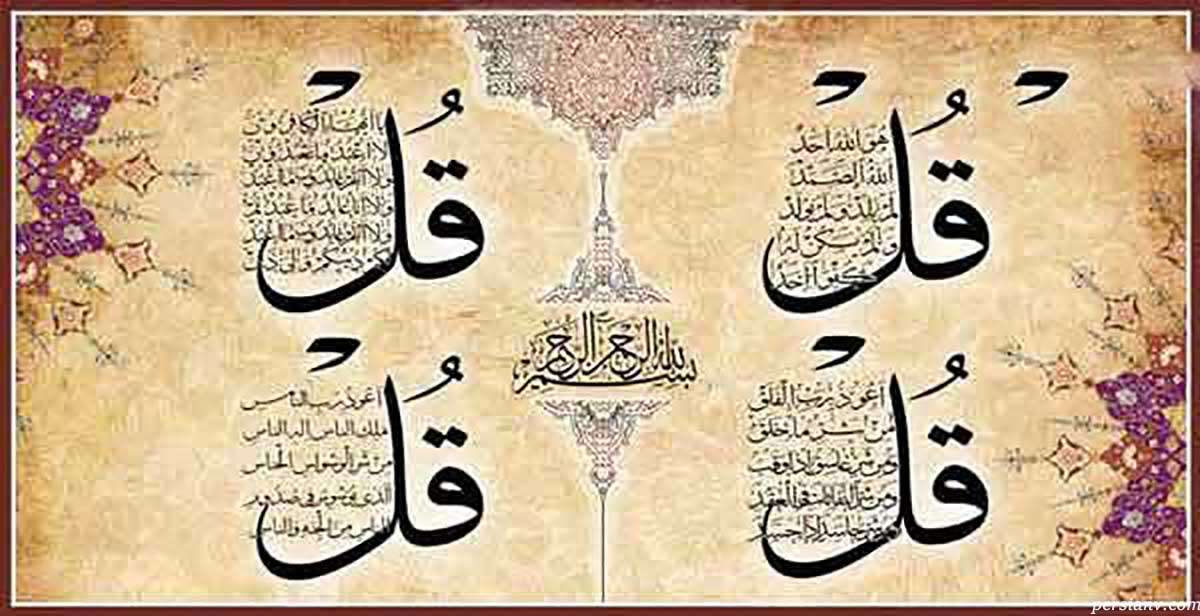 قُلْ
هو الله احد
الله الصمد
لم يلد و لم يولد
و لم يكن له
كفوا احد
قُلْ
يا ايها الكافرون
لا اعبد ما تعبدون
ولا انتم عابدون ما اعبد
ولا انا عابد ما عبدتم
ولا انتم عابدون ما اعبد
لكم دينكم ولى دين
بسم الله الرحمن الرحيم
قُلْ
اعوذ برب الفلق
من شر ما خلق
ومن شر غاسق اذا وقب
ومن شر النفاثات فى العقد
ومن شر حاسد اذا حسد
قُلْ
اعوذ برب الناس
ملك الناس اله الناس
من شر الوسواس الخناس
الذى يوسوس فى صدور
الناس من الجنه والناس
persianv.com